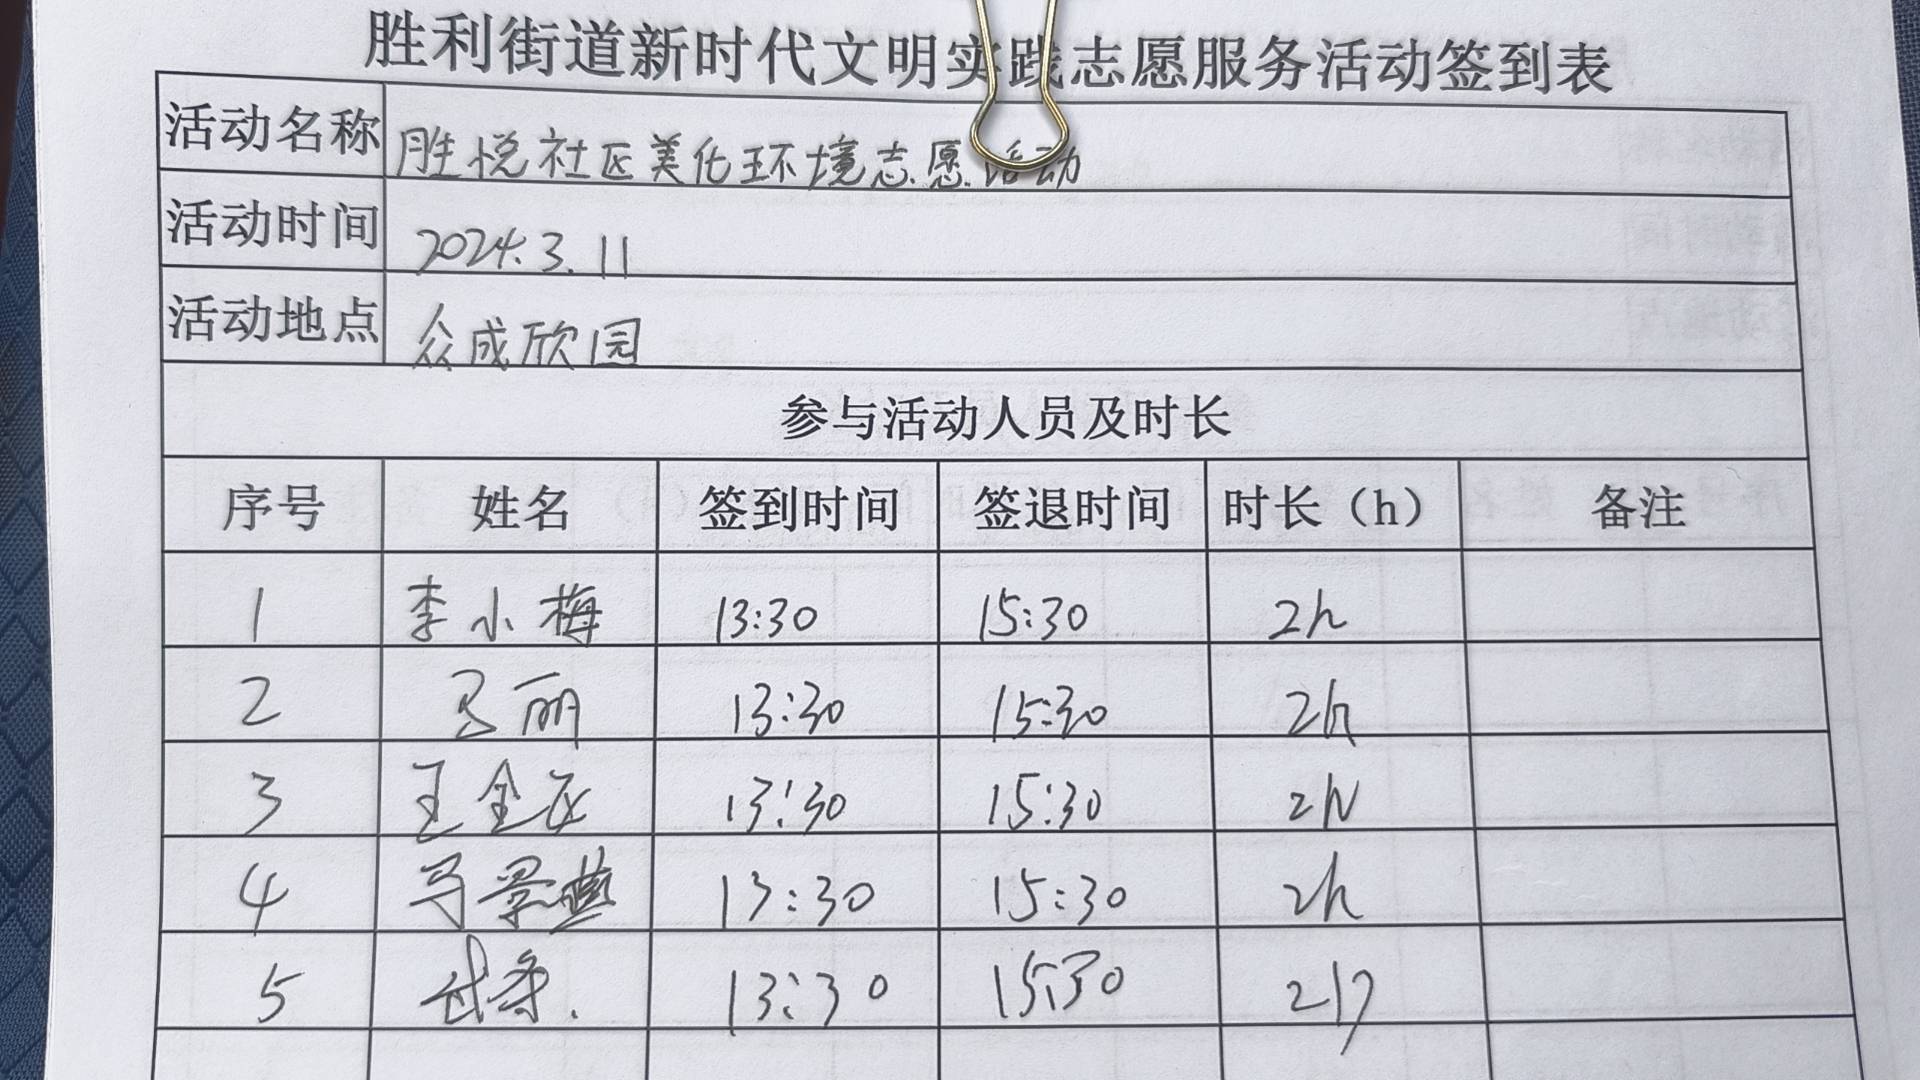 胜利街道新时代文明实践志愿服务活动签到表
活动名称 胜悦社区美化环境志愿活动
活动时间 2024.3.11
活动地点 众成欣园
参与活动人员及时长
序号 姓名 签到时间 签退时间 时长（h） 备注
1 李小梅 13:30 15:30 2h
2 马丽 13:30 15:30 2h
3 王全 13:30 15:30 2h
4 马景典 13:30 15:30 2h
5 13:30 15:30 2h